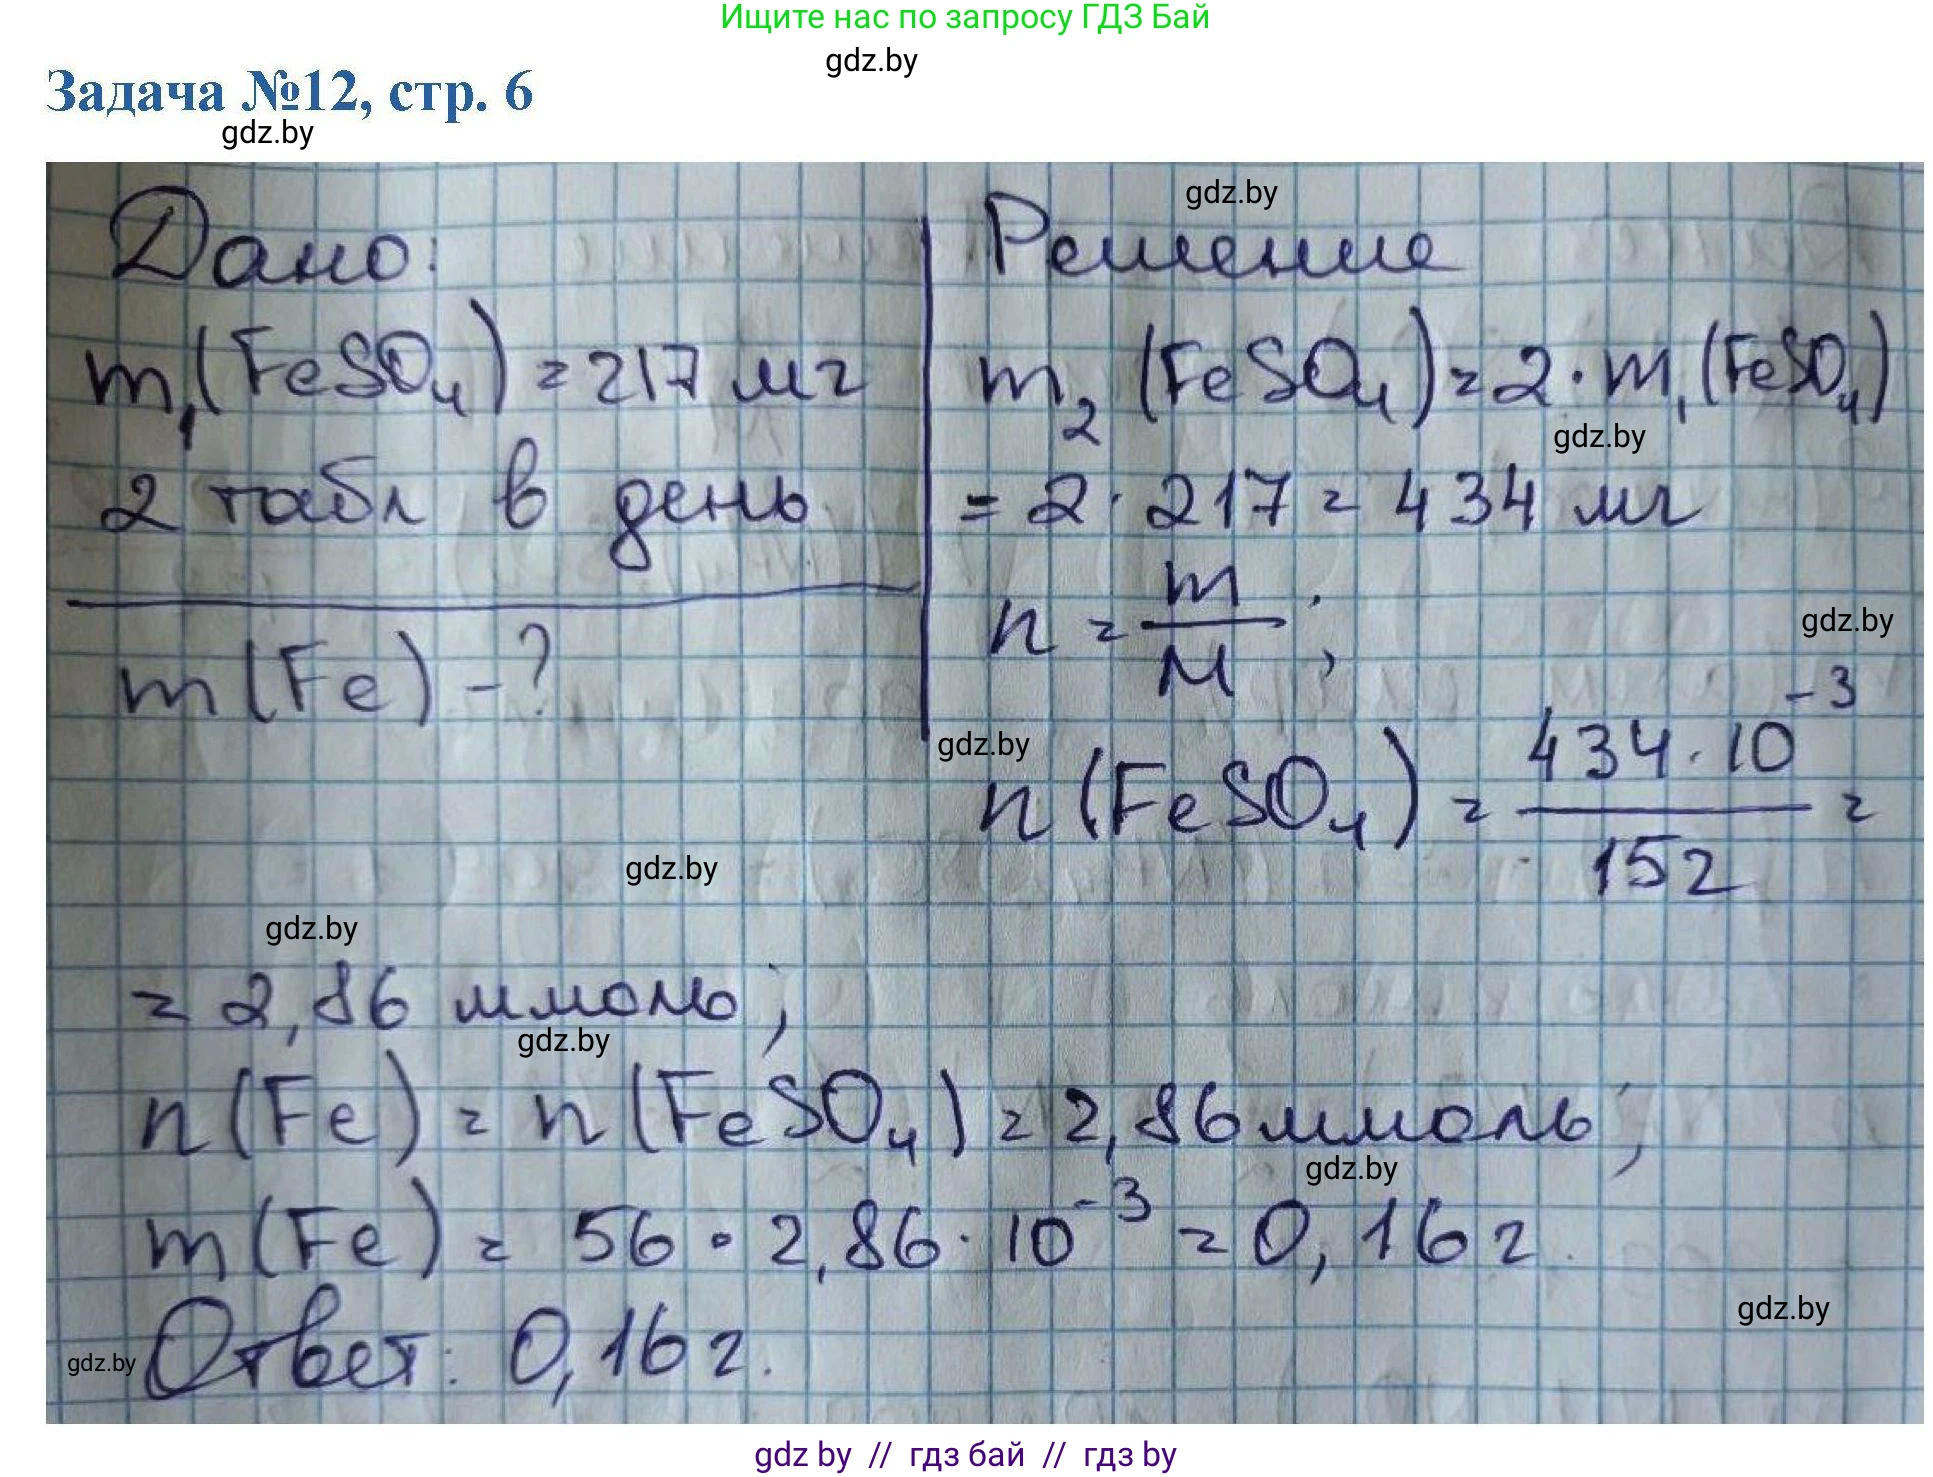 Ищите нас по запросу ГДЗ Бай
gdz.by
Задача №12, стр. 6
gdz.by
gdz.by
Дано:
m₁(FeSO₄) = 217 мг
2 табл в день
m(Fe) - ?
Решение
m₂(FeSO₄) = 2 · m₁(FeSO₄)
gdz.by
= 2 · 217 = 434 мг
n = m/M ;
gdz.by
gdz.by
n(FeSO₄) = 434 · 10⁻³/152 =
gdz.by
gdz.by
= 2,86 ммоль;
gdz.by
n(Fe) = n(FeSO₄) = 2,86 ммоль;
gdz.by
m(Fe) = 56 · 2,86 · 10⁻³ = 0,16 г.
gdz.by
gdz.by
Ответ: 0,16 г.
gdz by // гдз бай // гдз by